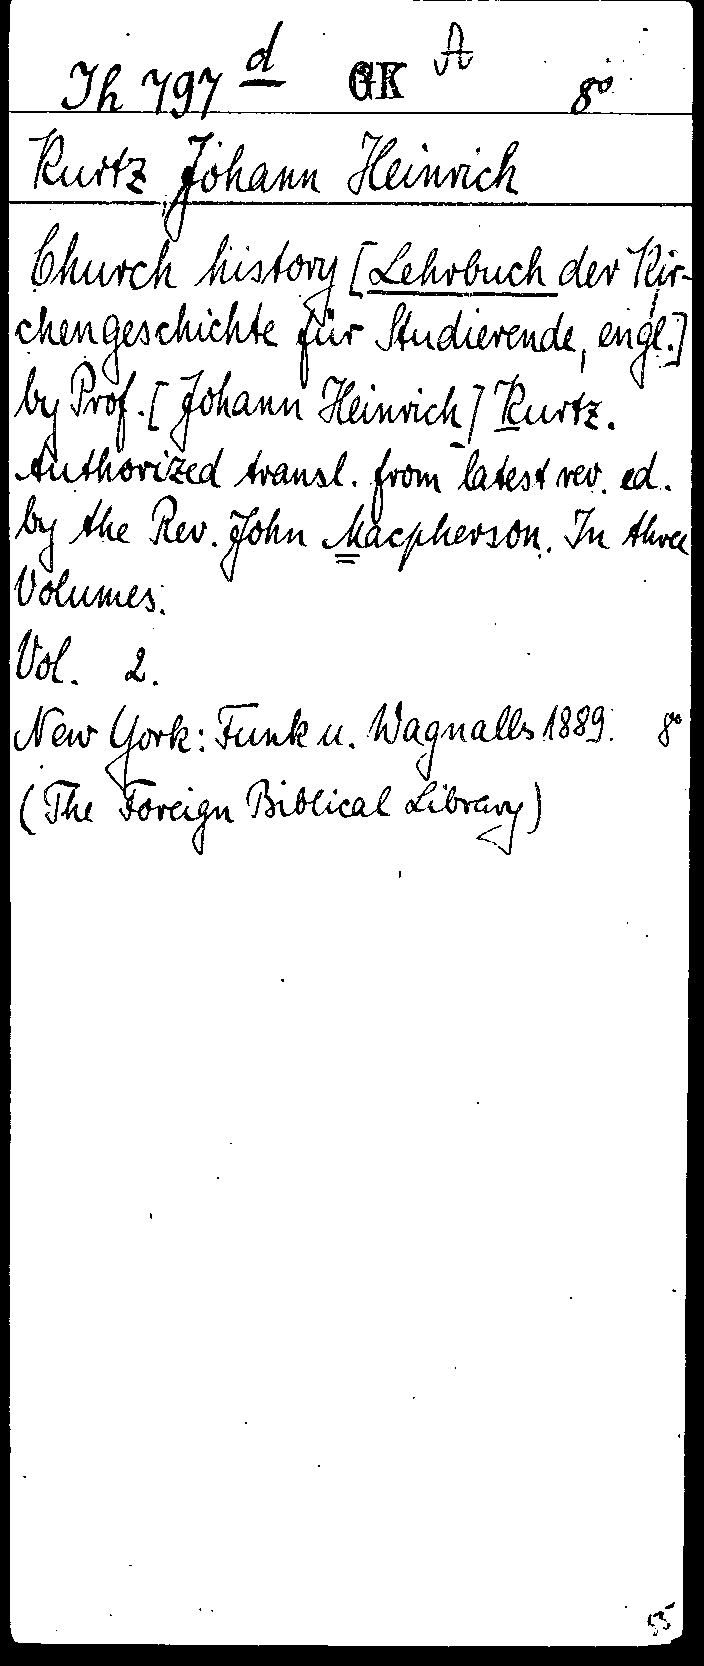 Th 797 d GK A 8°
Kurtz, Johann Heinrich
Church history [Lehrbuch der Kir-
chengeschichte für Studierende, engl.]
by Prof. [Johann Heinrich] Kurtz.
Authorized transl. from latest rev. ed.
by the Rev. John Macpherson. In three
Volumes.
Vol. 2.
New York: Funk u. Wagnalls 1889. 8°
(The Foreign Biblical Library)
55